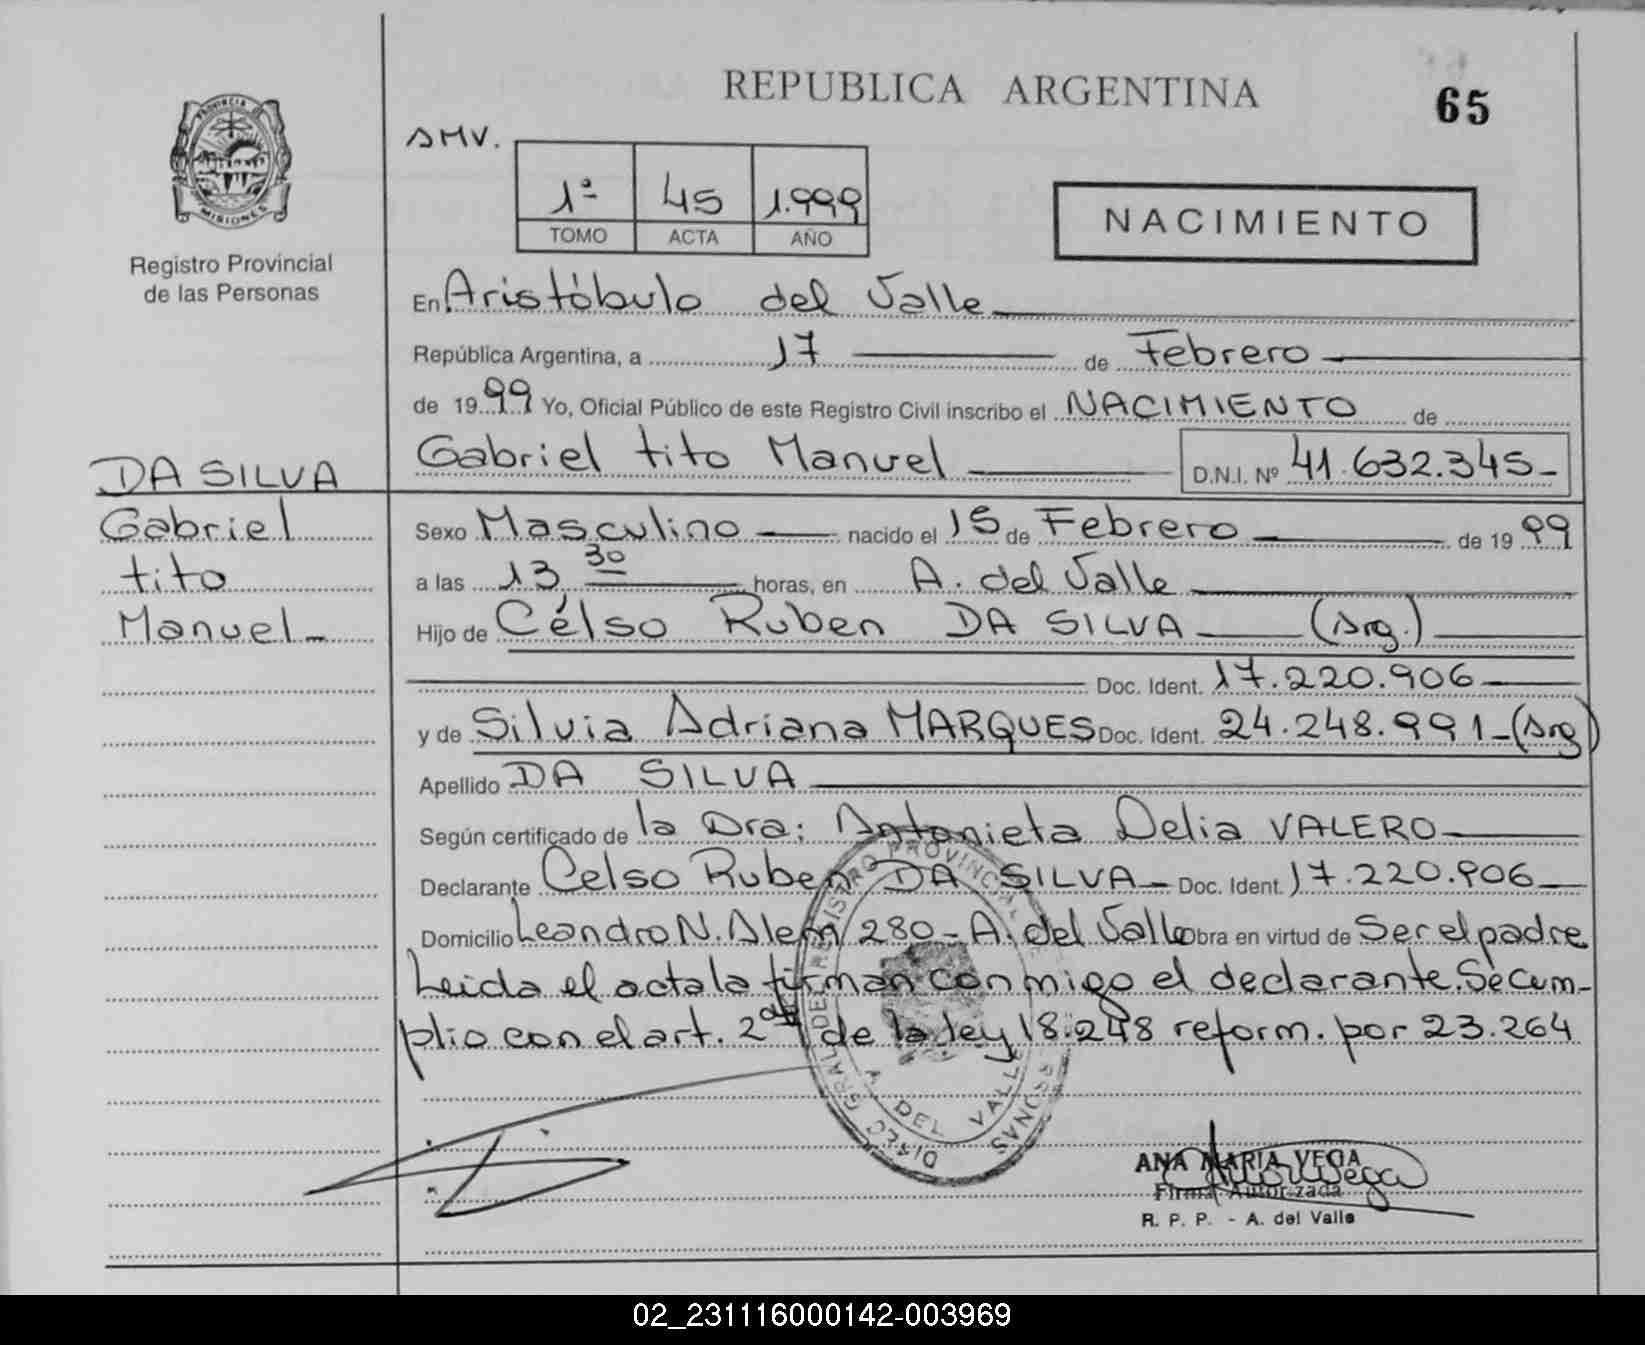 REPUBLICA ARGENTINA
65
SMV.
PROVINCIA DE
MISIONES
Registro Provincial
de las Personas
1ª 45 1.999
TOMO ACTA AÑO
NACIMIENTO
En Aristóbulo del Valle
República Argentina, a 17 de Febrero
de 1999 Yo, Oficial Público de este Registro Civil inscribo el NACIMIENTO de
Gabriel tito Manuel D.N.I. Nº 41.632.345-
DA SILVA
Gabriel
tito
Manuel-
Sexo Masculino nacido el 15 de Febrero de 1999
a las 13 30 horas, en A. del Valle
Hijo de Célso Ruben DA SILVA (Arg.)
Doc. Ident. 17.220.906
y de Silvia Adriana MARQUES Doc. Ident. 24.248.991-(Arg)
Apellido DA SILVA
Según certificado de la Dra: Antonieta Delia VALERO
Declarante Celso Ruben DA SILVA- Doc. Ident. 17.220.906
Domicilio Leandro N. Alem 280- A. del Valle Obra en virtud de Ser el padre
Leida el acta la firman conmigo el declarante. Se cum-
plio con el art. 2do de la ley 18.248 reform. por 23.264
DIREC GRAL DE REGISTRO PROVINCIAL
A DEL VALLE
ANA MARIA VEGA
Firma Autorizada
R. P. P. - A. del Valle
02_231116000142-003969